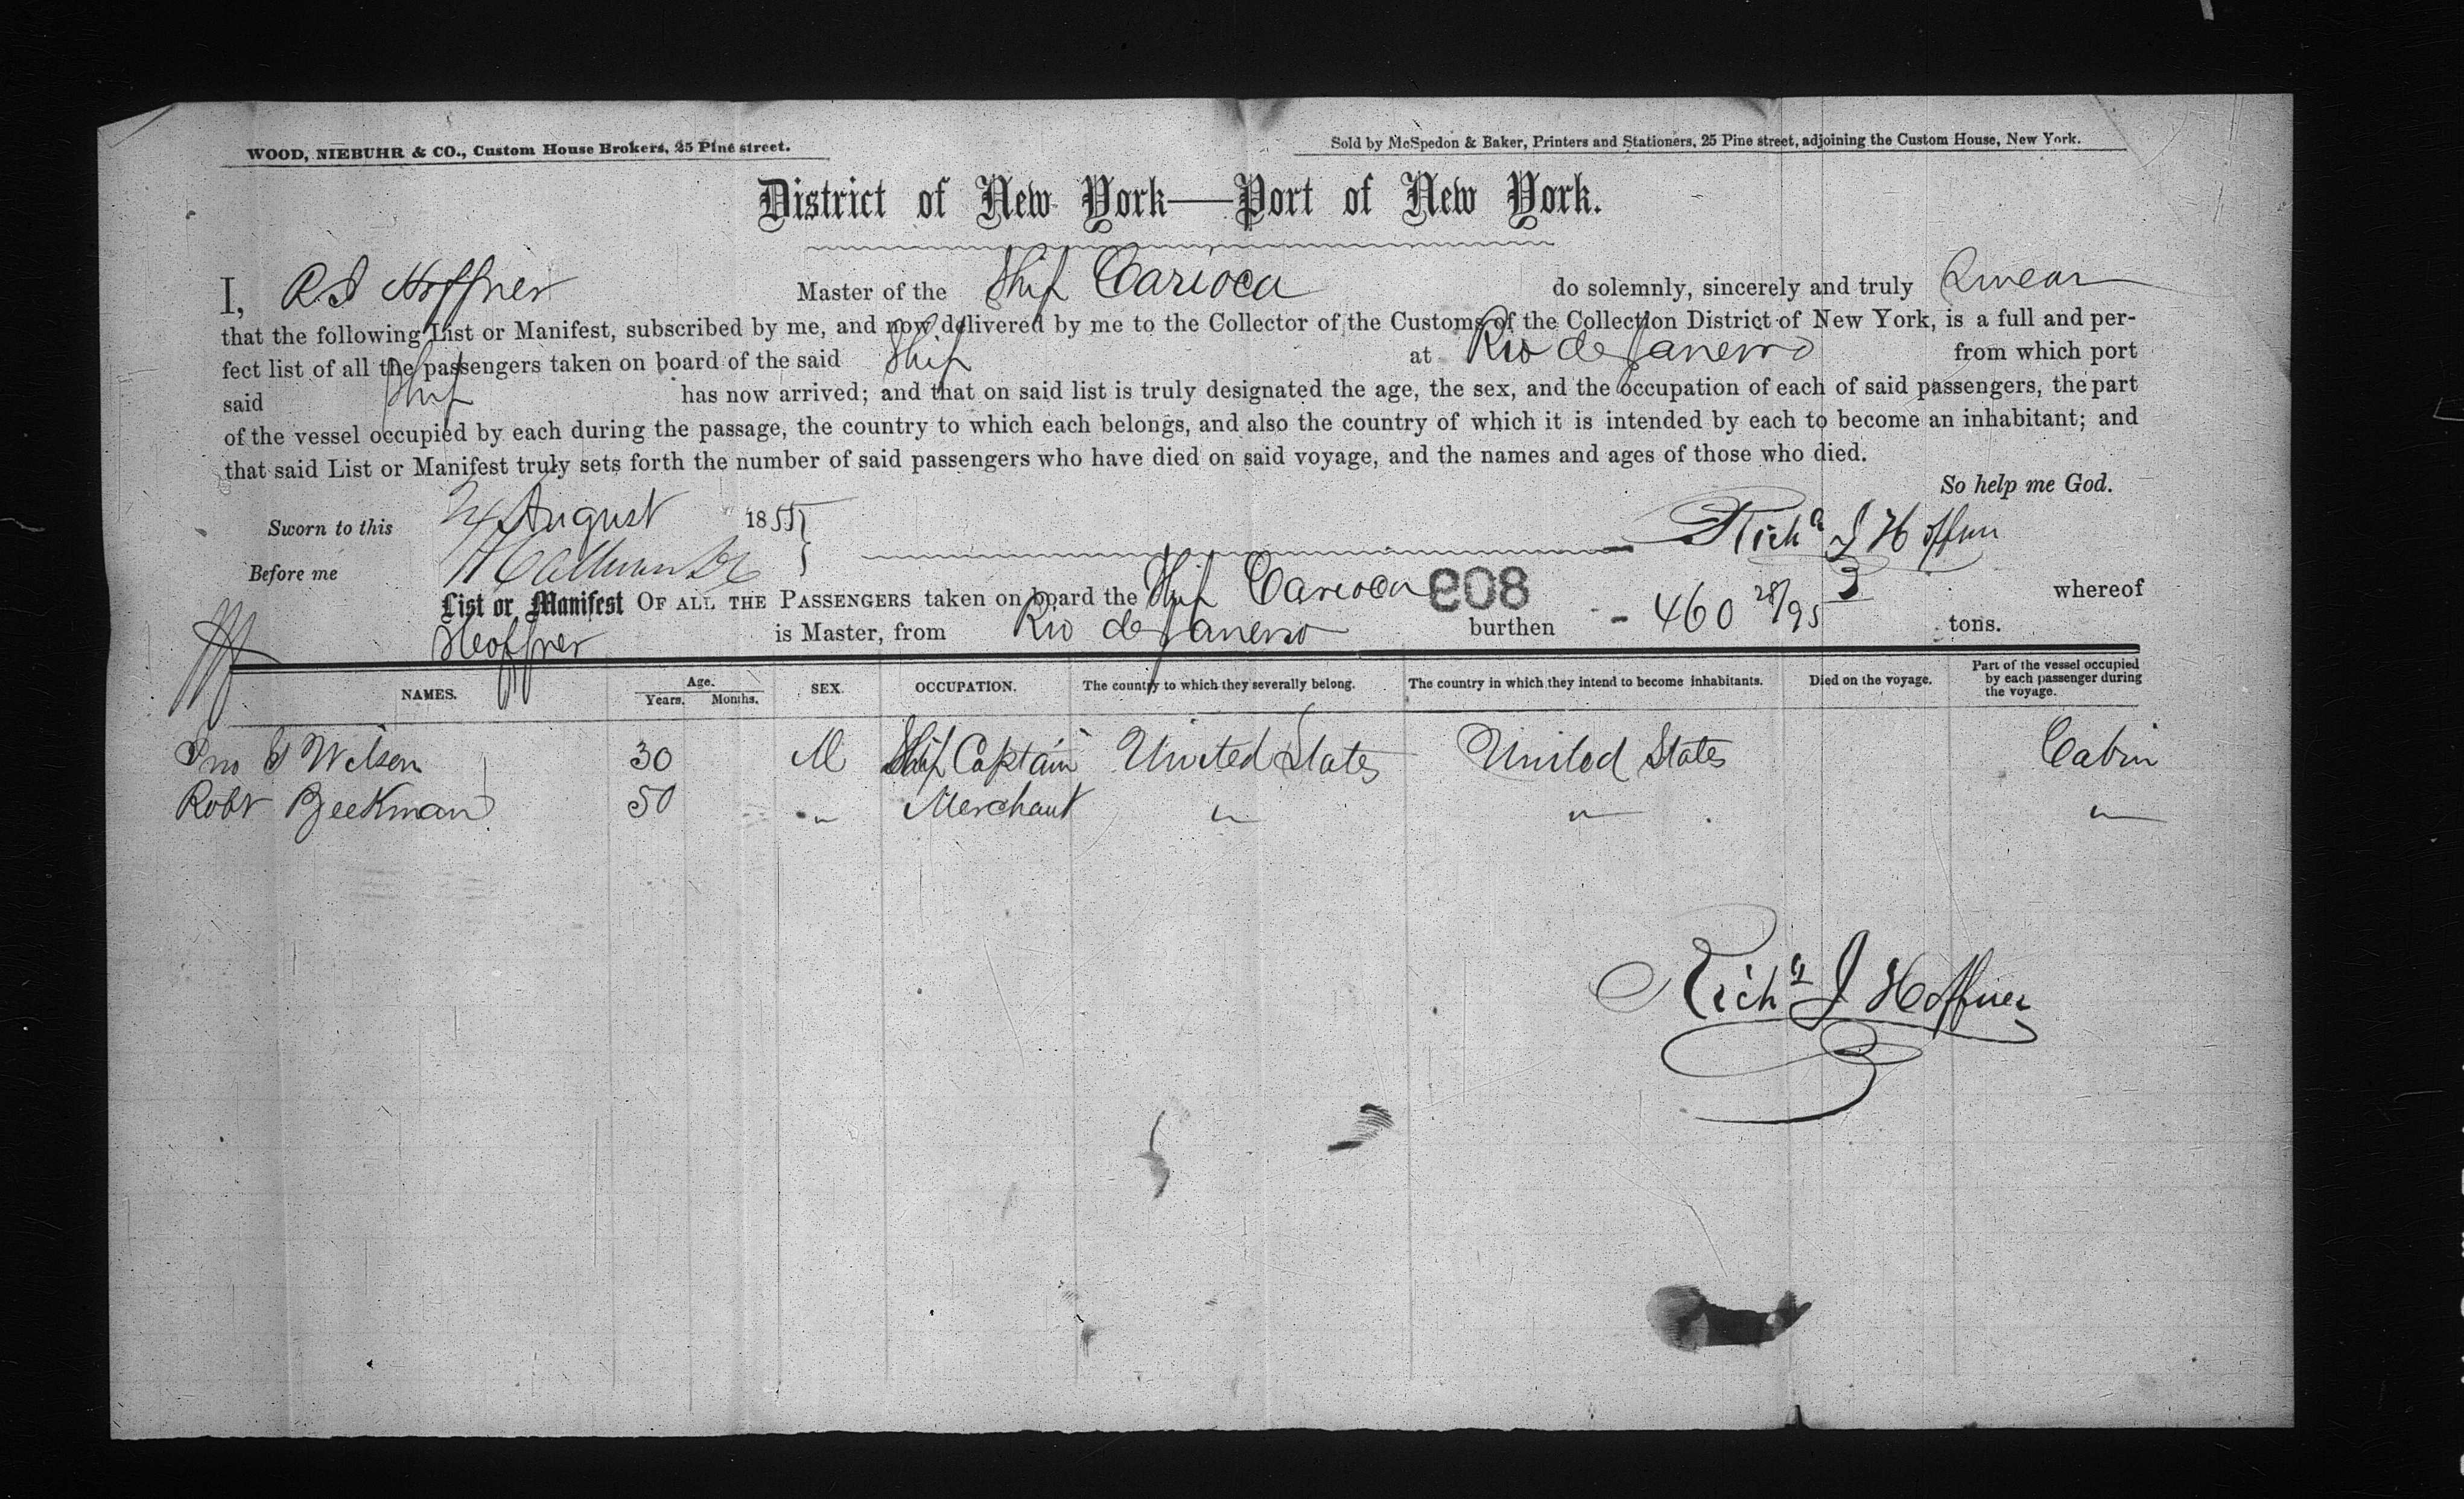 WOOD, NIEBUHR & CO., Custom House Brokers, 25 Pine street.
Sold by McSpedon & Baker, Printers and Stationers, 25 Pine street, adjoining the Custom House, New York.
District of New York—Port of New York.
I, R J Hoffner Master of the Ship Carioca do solemnly, sincerely and truly Swear
that the following List or Manifest, subscribed by me, and now delivered by me to the Collector of the Customs of the Collection District of New York, is a full and per-
fect list of all the passengers taken on board of the said Ship at Rio de Janeiro from which port
said Ship has now arrived; and that on said list is truly designated the age, the sex, and the occupation of each of said passengers, the part
of the vessel occupied by each during the passage, the country to which each belongs, and also the country of which it is intended by each to become an inhabitant; and
that said List or Manifest truly sets forth the number of said passengers who have died on said voyage, and the names and ages of those who died.
So help me God.
Sworn to this 24 August 1855
Richd J Hoffner
Before me
List or Manifest OF ALL THE PASSENGERS taken on board the Ship Carioca 908 whereof
Hoffner is Master, from Rio de Janeiro burthen - 460 28/95 tons.
NAMES. Age. Years. Months. SEX. OCCUPATION. The country to which they severally belong. The country in which they intend to become inhabitants. Died on the voyage. Part of the vessel occupied by each passenger during the voyage.
Jno Wilson 30 M Ship Captain United States United States Cabin
Robt Beekman 50 " Merchant " " "
Richd J Hoffner